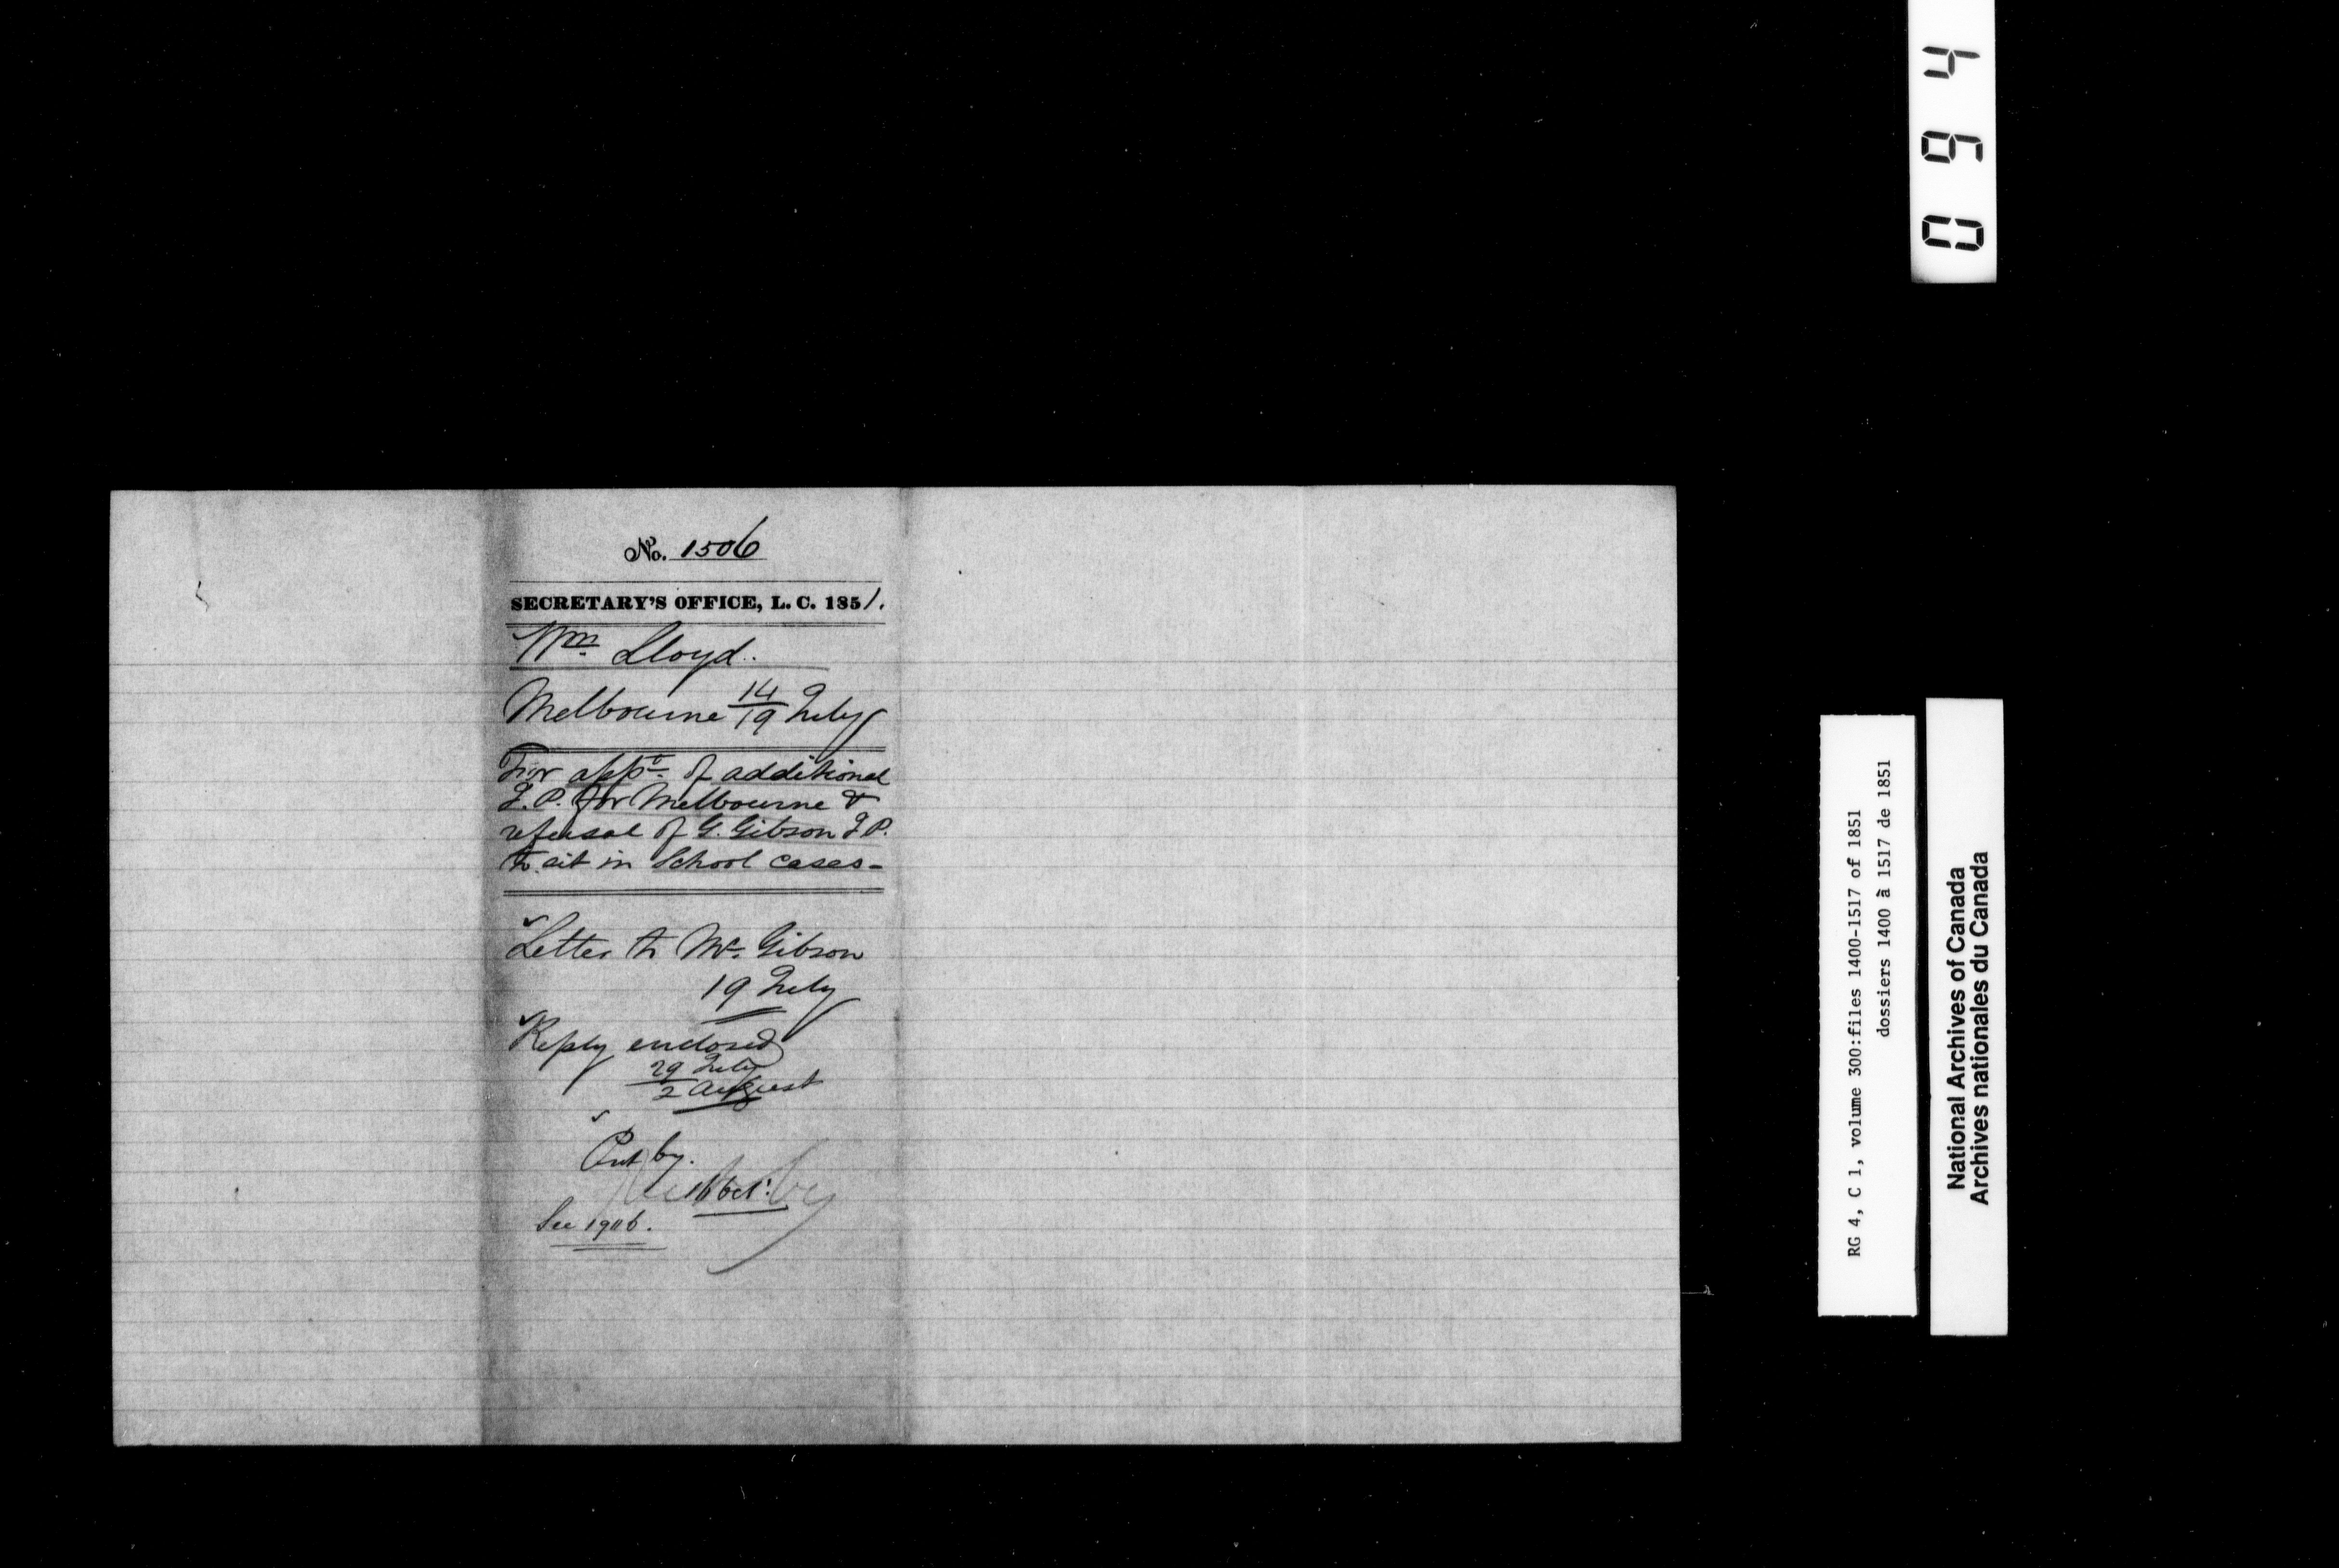 No. 1506
SECRETARY'S OFFICE, L. C. 1851.
Wm Lloyd.
Melbourne 14/19 July
For appt. of additional
J. P. for Melbourne &
refusal of G. Gibson J P.
to sit in School cases-
Letter to Mr. Gibson
19 July
Reply enclosed
29 July
2 August
Put by.
16 Oct:
See 1906.
0 9 4
RG 4, C 1, volume 300:files 1400-1517 of 1851
dossiers 1400 à 1517 de 1851
National Archives of Canada
Archives nationales du Canada